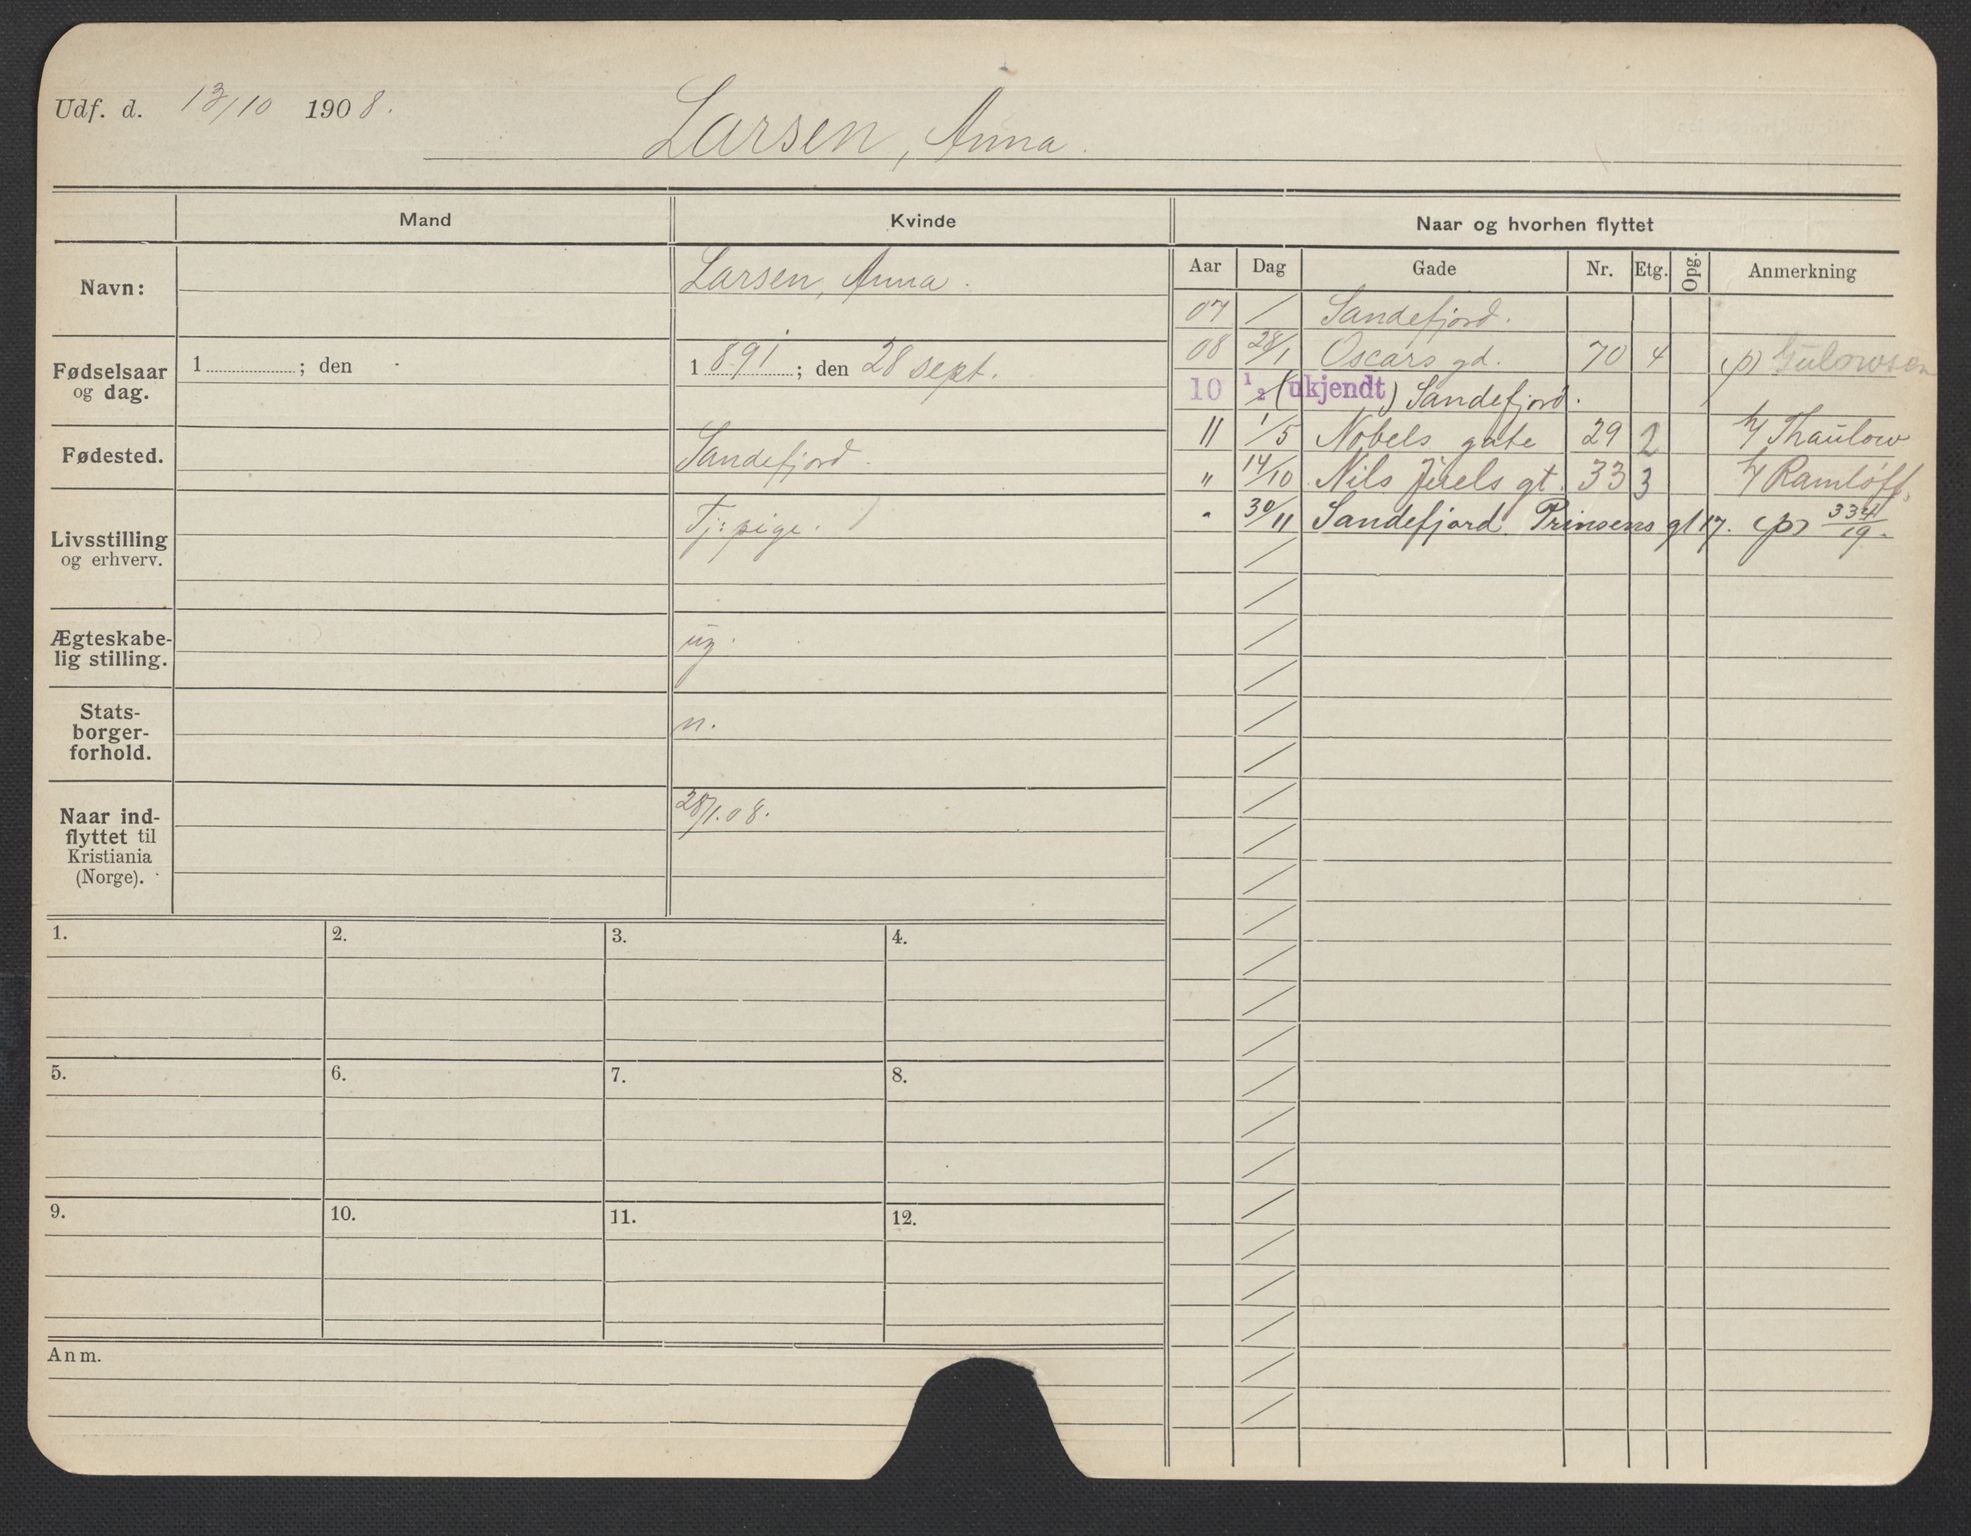 Udf. d. 13/10 1908.
Larsen, Anna.
Mand Kvinde Naar og hvorhen flyttet
Aar Dag Gade Nr. Etg. Opg. Anmerkning
Navn: Larsen, Anna.
07 / Sandefjord.
Fødselsaar og dag. 1 ; den 1891 ; den 28 sept.
08 28/1 Oscars gd. 70 4 (p) Gulowsen
10 1/2 (ukjendt) Sandefjord.
Fødested. Sandefjord.
11 1/5 Nobels gate 29 2 h/ Thaulow
" 14/10 Nils Juels gt. 33 3 h/ Ramløff.
Livsstilling og erhverv. Tj: pige.
" 30/11 Sandefjord. Prinsens gt 17. (p) 334/19.
Ægteskabe-
lig stilling. ug.
Stats-
borger-
forhold. n.
Naar ind-
flyttet til
Kristiania
(Norge). 28/1.08.
1. 2. 3. 4.
5. 6. 7. 8.
9. 10. 11. 12.
Anm.